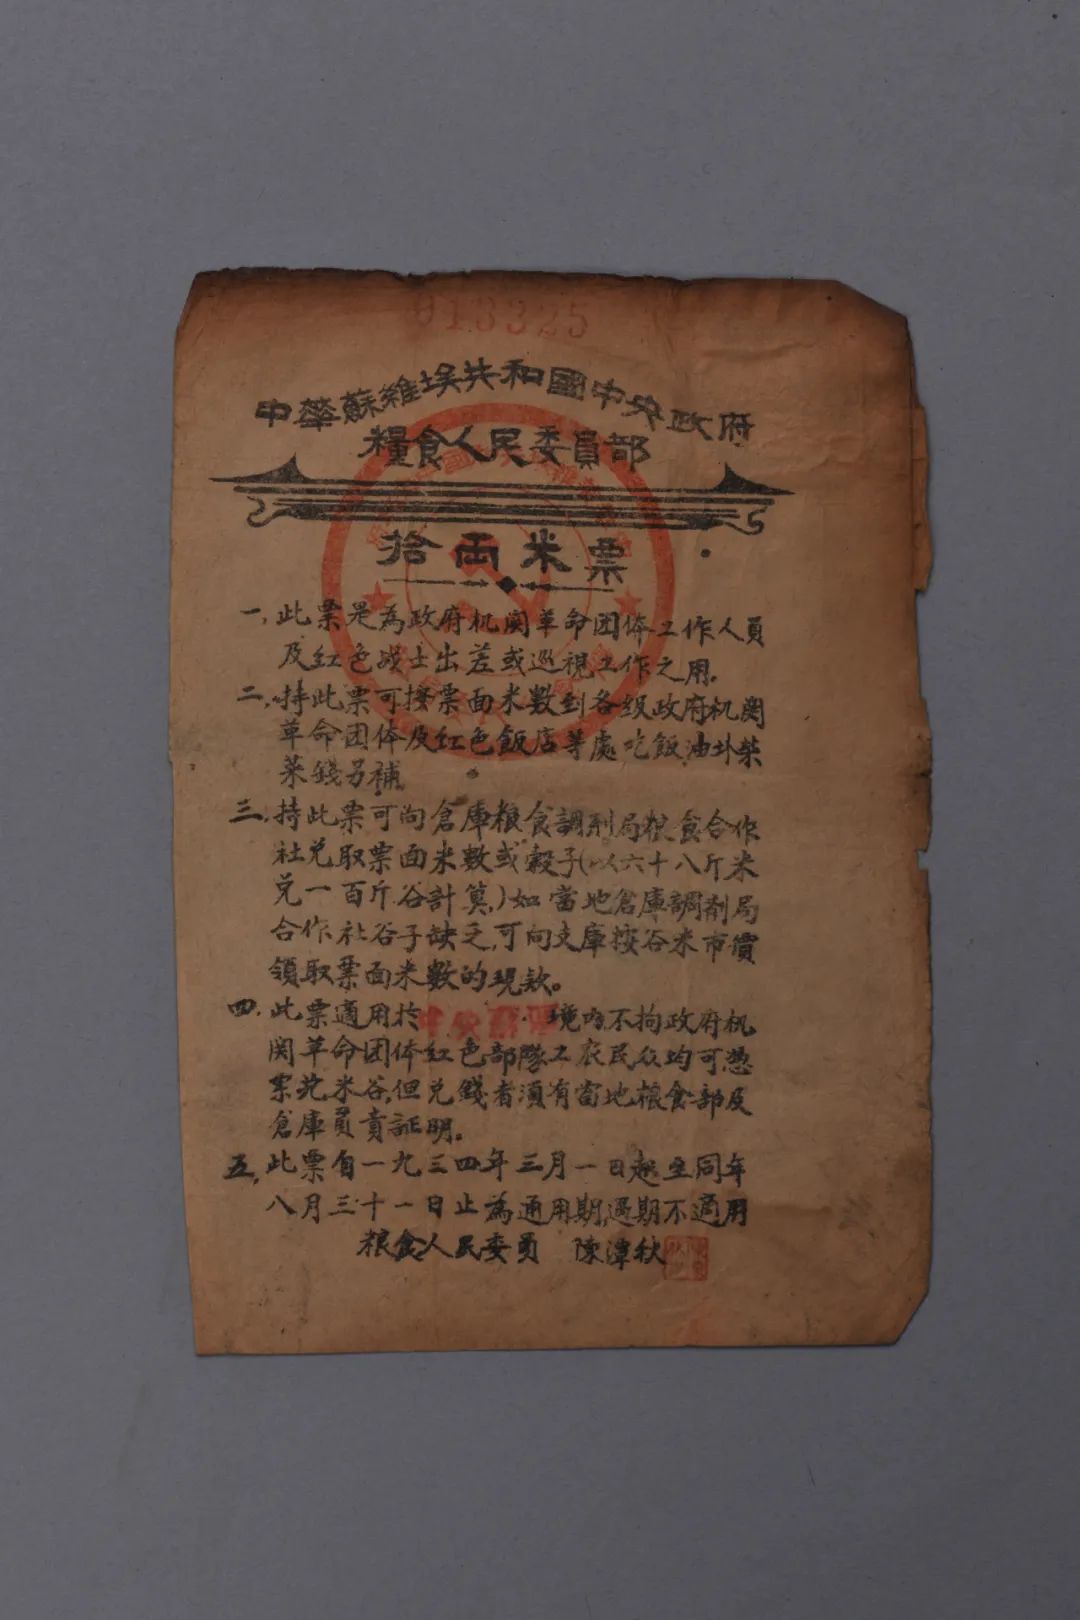 013325
中華蘇維埃共和國中央政府
糧食人民委員部
拾両米票
一,此票是為政府机関革命团体工作人員
及红色战士出差或巡視工作之用.
二,持此票可按票面米数到各级政府机関
革命团体及红色飯店等處吃飯油盐柴
菜錢另補.
三,持此票可向倉庫粮食調剂局粮食合作
社兑取票面米数或穀子(以六十八斤米
兑一百斤谷計算)如當地倉庫調剂局
合作社谷子缺乏,可向支庫按谷米市價
領取票面米數的現欵。
四.此票適用於中央苏區境内不拘政府机
関革命团体红色部隊工农民众均可憑
票兑米谷,但兑錢者須有當地粮食部及
倉庫員責証明.
五,此票自一九三四年三月一日起至同年
八月三十一日止為通用期,過期不適用
粮食人民委员 陳潭秋